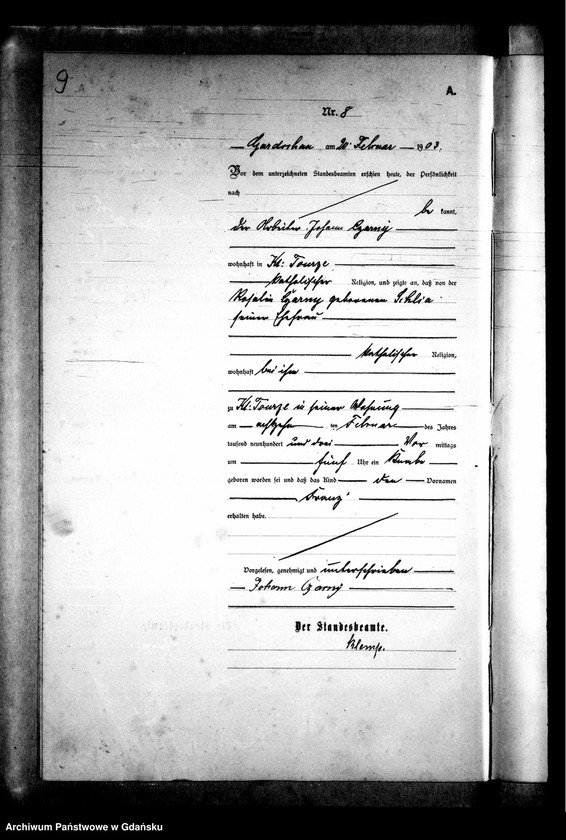 9
A.
Nr. 8
Gardschau am 20. Februar 1903.
Vor dem unterzeichneten Standesbeamten erschien heute, der Persönlichkeit
nach
be kannt,
der Arbeiter Johann Czarny
wohnhaft in Kl: Tourze
katholischer Religion, und zeigte an, daß von der
Rosalia Czarny geborenen
seiner Ehefrau
katholischer Religion,
wohnhaft bei ihm
zu Kl: Tourze in seiner Wohnung
am achtzehn ten Februar des Jahres
tausend neunhundert und drei Vor mittags
um fünf Uhr ein Knabe
geboren worden sei und daß das Kind den Vornamen
Franz
erhalten habe.
Vorgelesen, genehmigt und unterschrieben
Johann Czarny
Der Standesbeamte.
Klemp.
Archiwum Państwowe w Gdańsku